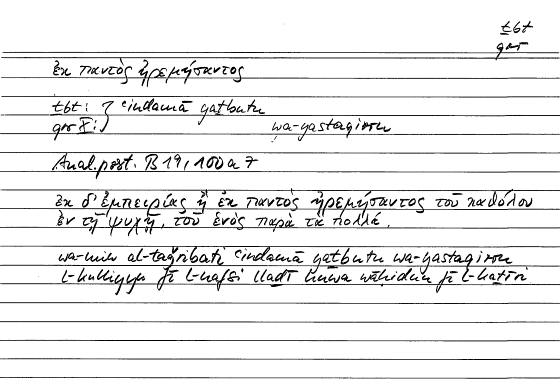 t̲bt
qrr
ἐκ παντὸς ἠρεμήσαντος
t̲bt: } ʿindamā yat̲butu
qrr X: wa-yastaqirru
Anal. post. B 19, 100 a 7
ἐκ δ' ἐμπειρίας ἢ ἐκ παντὸς ἠρεμήσαντος τοῦ καθόλου
ἐν τῇ ψυχῇ, τοῦ ἑνὸς παρὰ τὰ πολλά.
wa-min al-taǧribati ʿindamā yat̲butu wa-yastaqirru
l-kulliyyu fī l-nafsi llad̲ī huwa wāḥidun fī l-kat̲īri